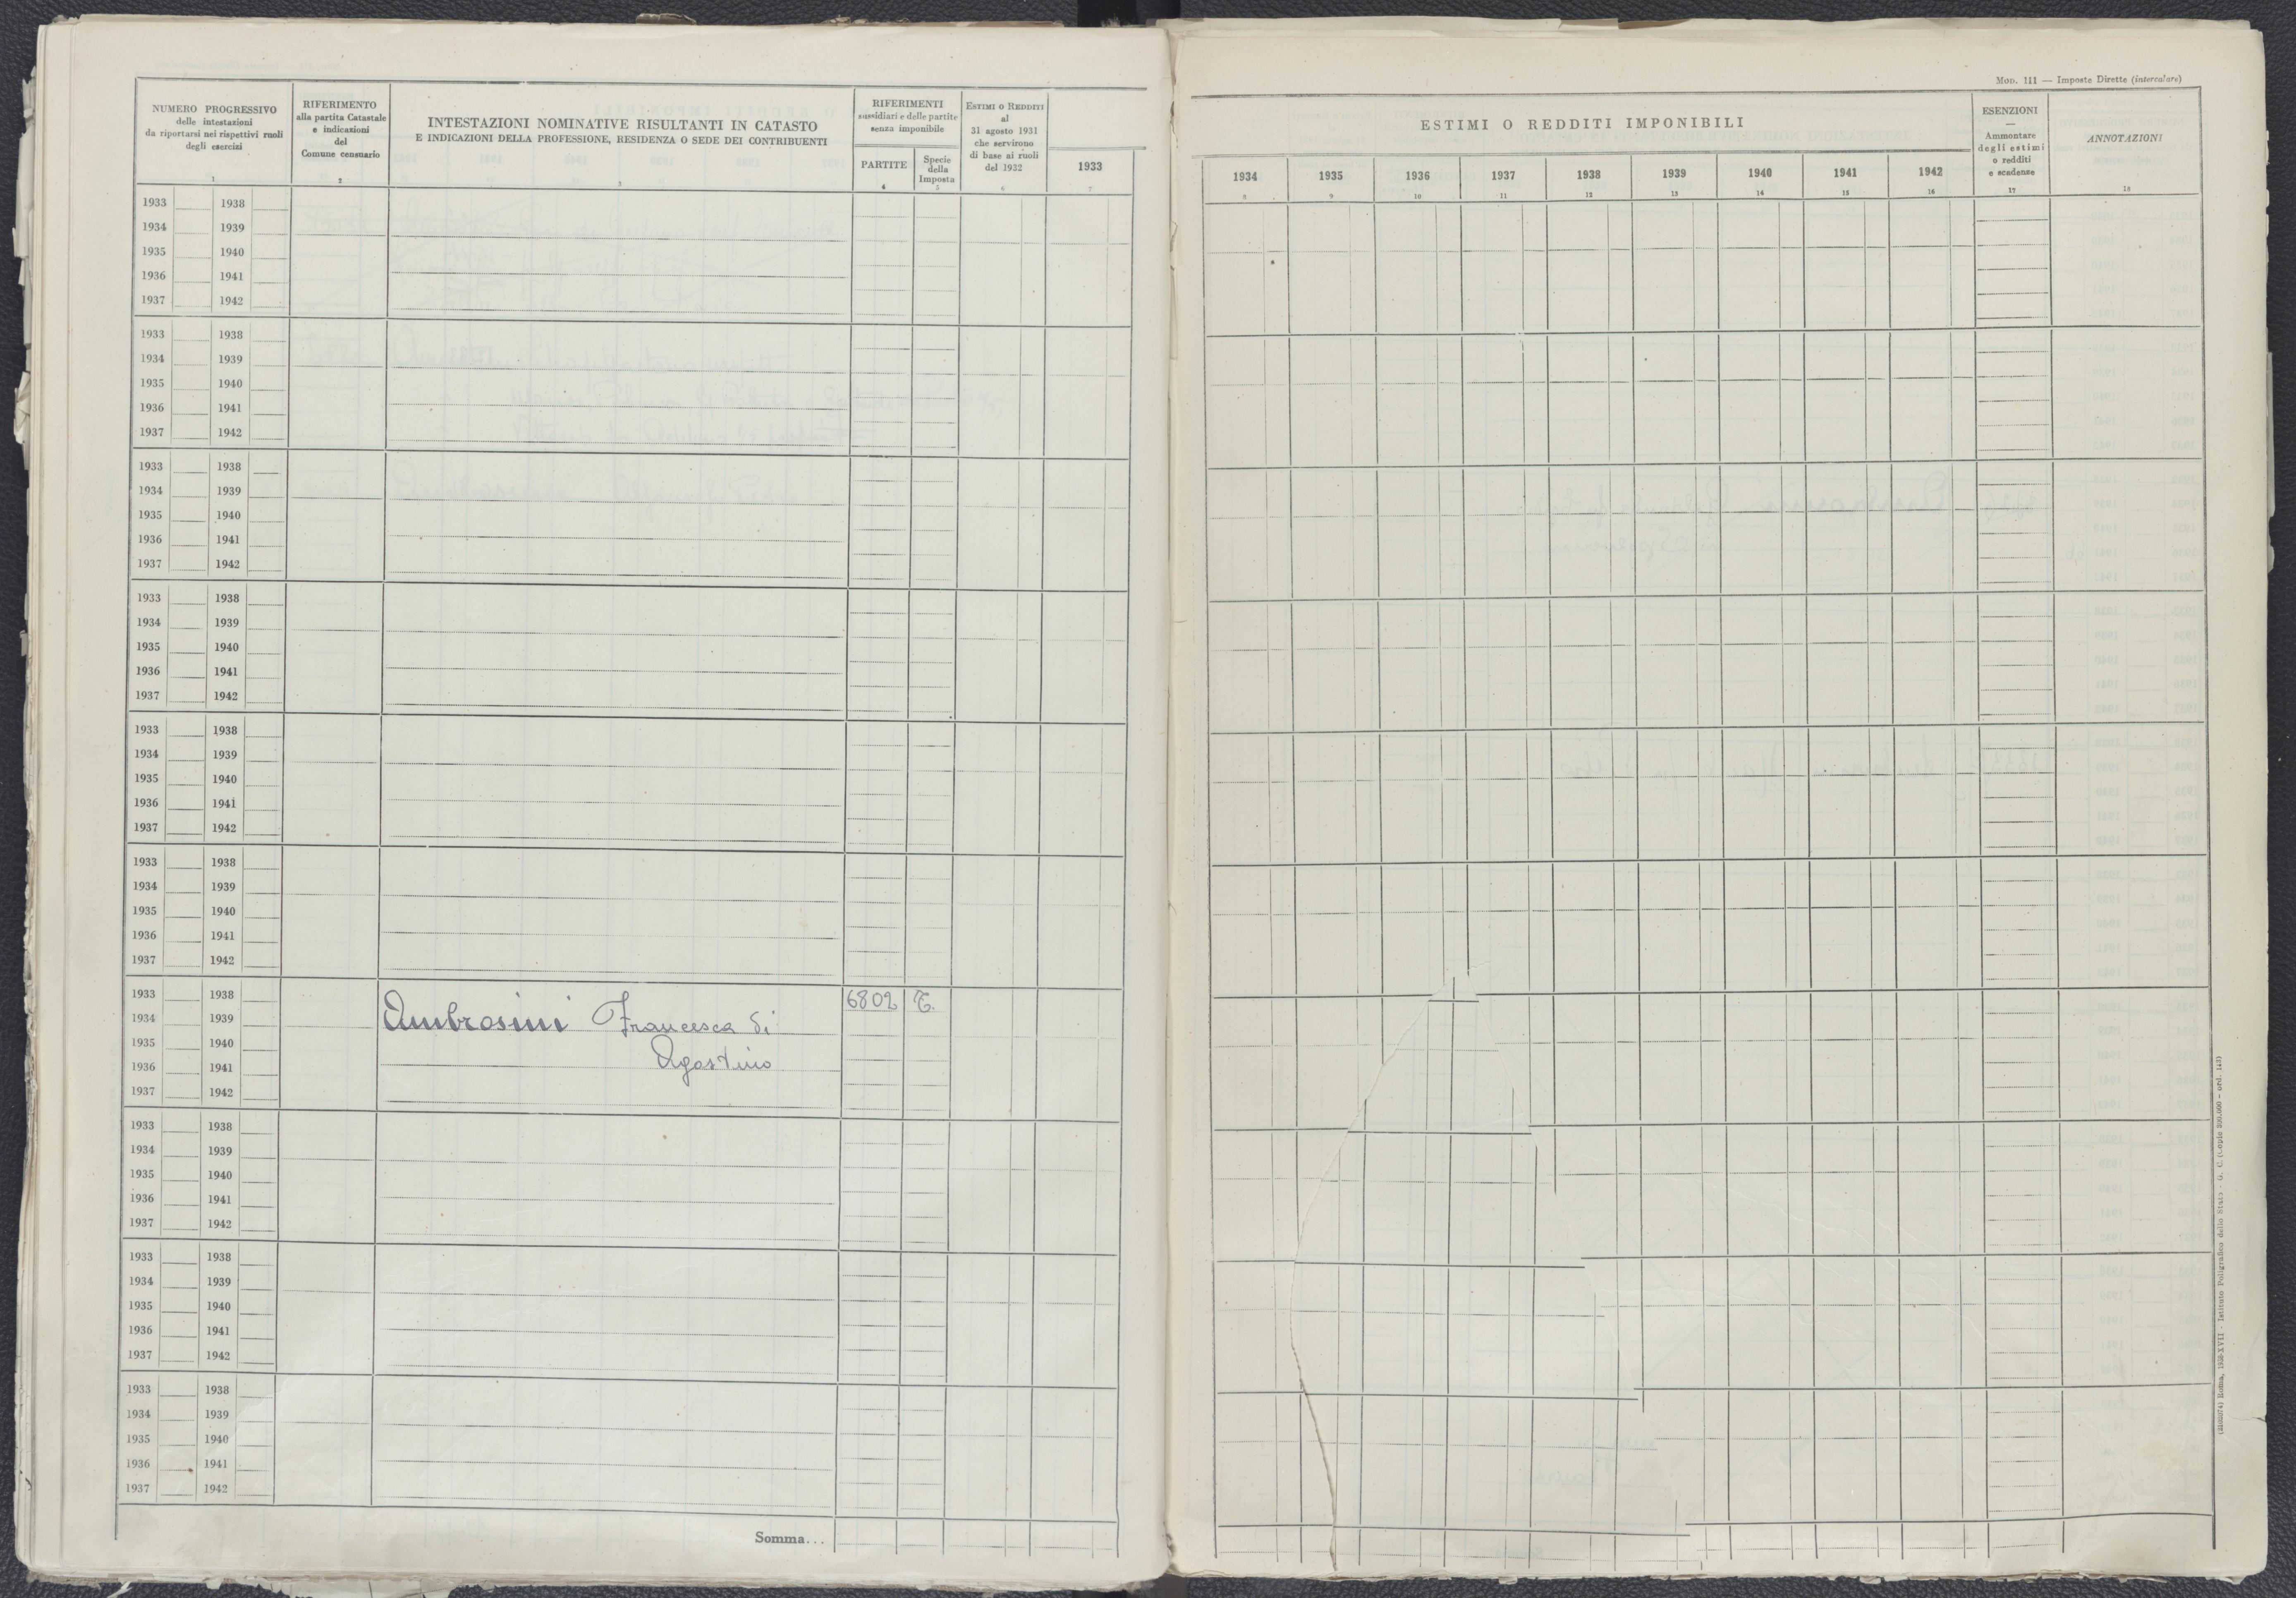 NUMERO PROGRESSIVO
delle intestazioni
da riportarsi nei rispettivi ruoli
degli esercizi
1
RIFERIMENTO
alla partita Catastale
e indicazioni
del
Comune censuario
2
INTESTAZIONI NOMINATIVE RISULTANTI IN CATASTO
E INDICAZIONI DELLA PROFESSIONE, RESIDENZA O SEDE DEI CONTRIBUENTI
3
RIFERIMENTI
sussidiari e delle partite
senza imponibile
PARTITE
4
Specie
della
Imposta
5
ESTIMI O REDDITI
al
31 agosto 1931
che servirono
di base ai ruoli
del 1932
6
1933
7
1933 1938
1934 1939
1935 1940
1936 1941
1937 1942
1933 1938
1934 1939
1935 1940
1936 1941
1937 1942
1933 1938
1934 1939
1935 1940
1936 1941
1937 1942
1933 1938
1934 1939
1935 1940
1936 1941
1937 1942
1933 1938
1934 1939
1935 1940
1936 1941
1937 1942
1933 1938
1934 1939
1935 1940
1936 1941
1937 1942
1933 1938 6802 T.
1934 1939 Ambrosini Francesca di
1935 1940
1936 1941 Agostino
1937 1942
1933 1938
1934 1939
1935 1940
1936 1941
1937 1942
1933 1938
1934 1939
1935 1940
1936 1941
1937 1942
1933 1938
1934 1939
1935 1940
1936 1941
1937 1942
Somma...
MOD. 111 — Imposte Dirette (intercalare)
ESTIMI O REDDITI IMPONIBILI
1934 1935 1936 1937 1938 1939 1940 1941 1942
8 9 10 11 12 13 14 15 16
ESENZIONI
—
Ammontare
degli estimi
o redditi
e scadenze
17
ANNOTAZIONI
18
Roma, 1938-XVII - Istituto Poligrafico dello Stato - G. C.